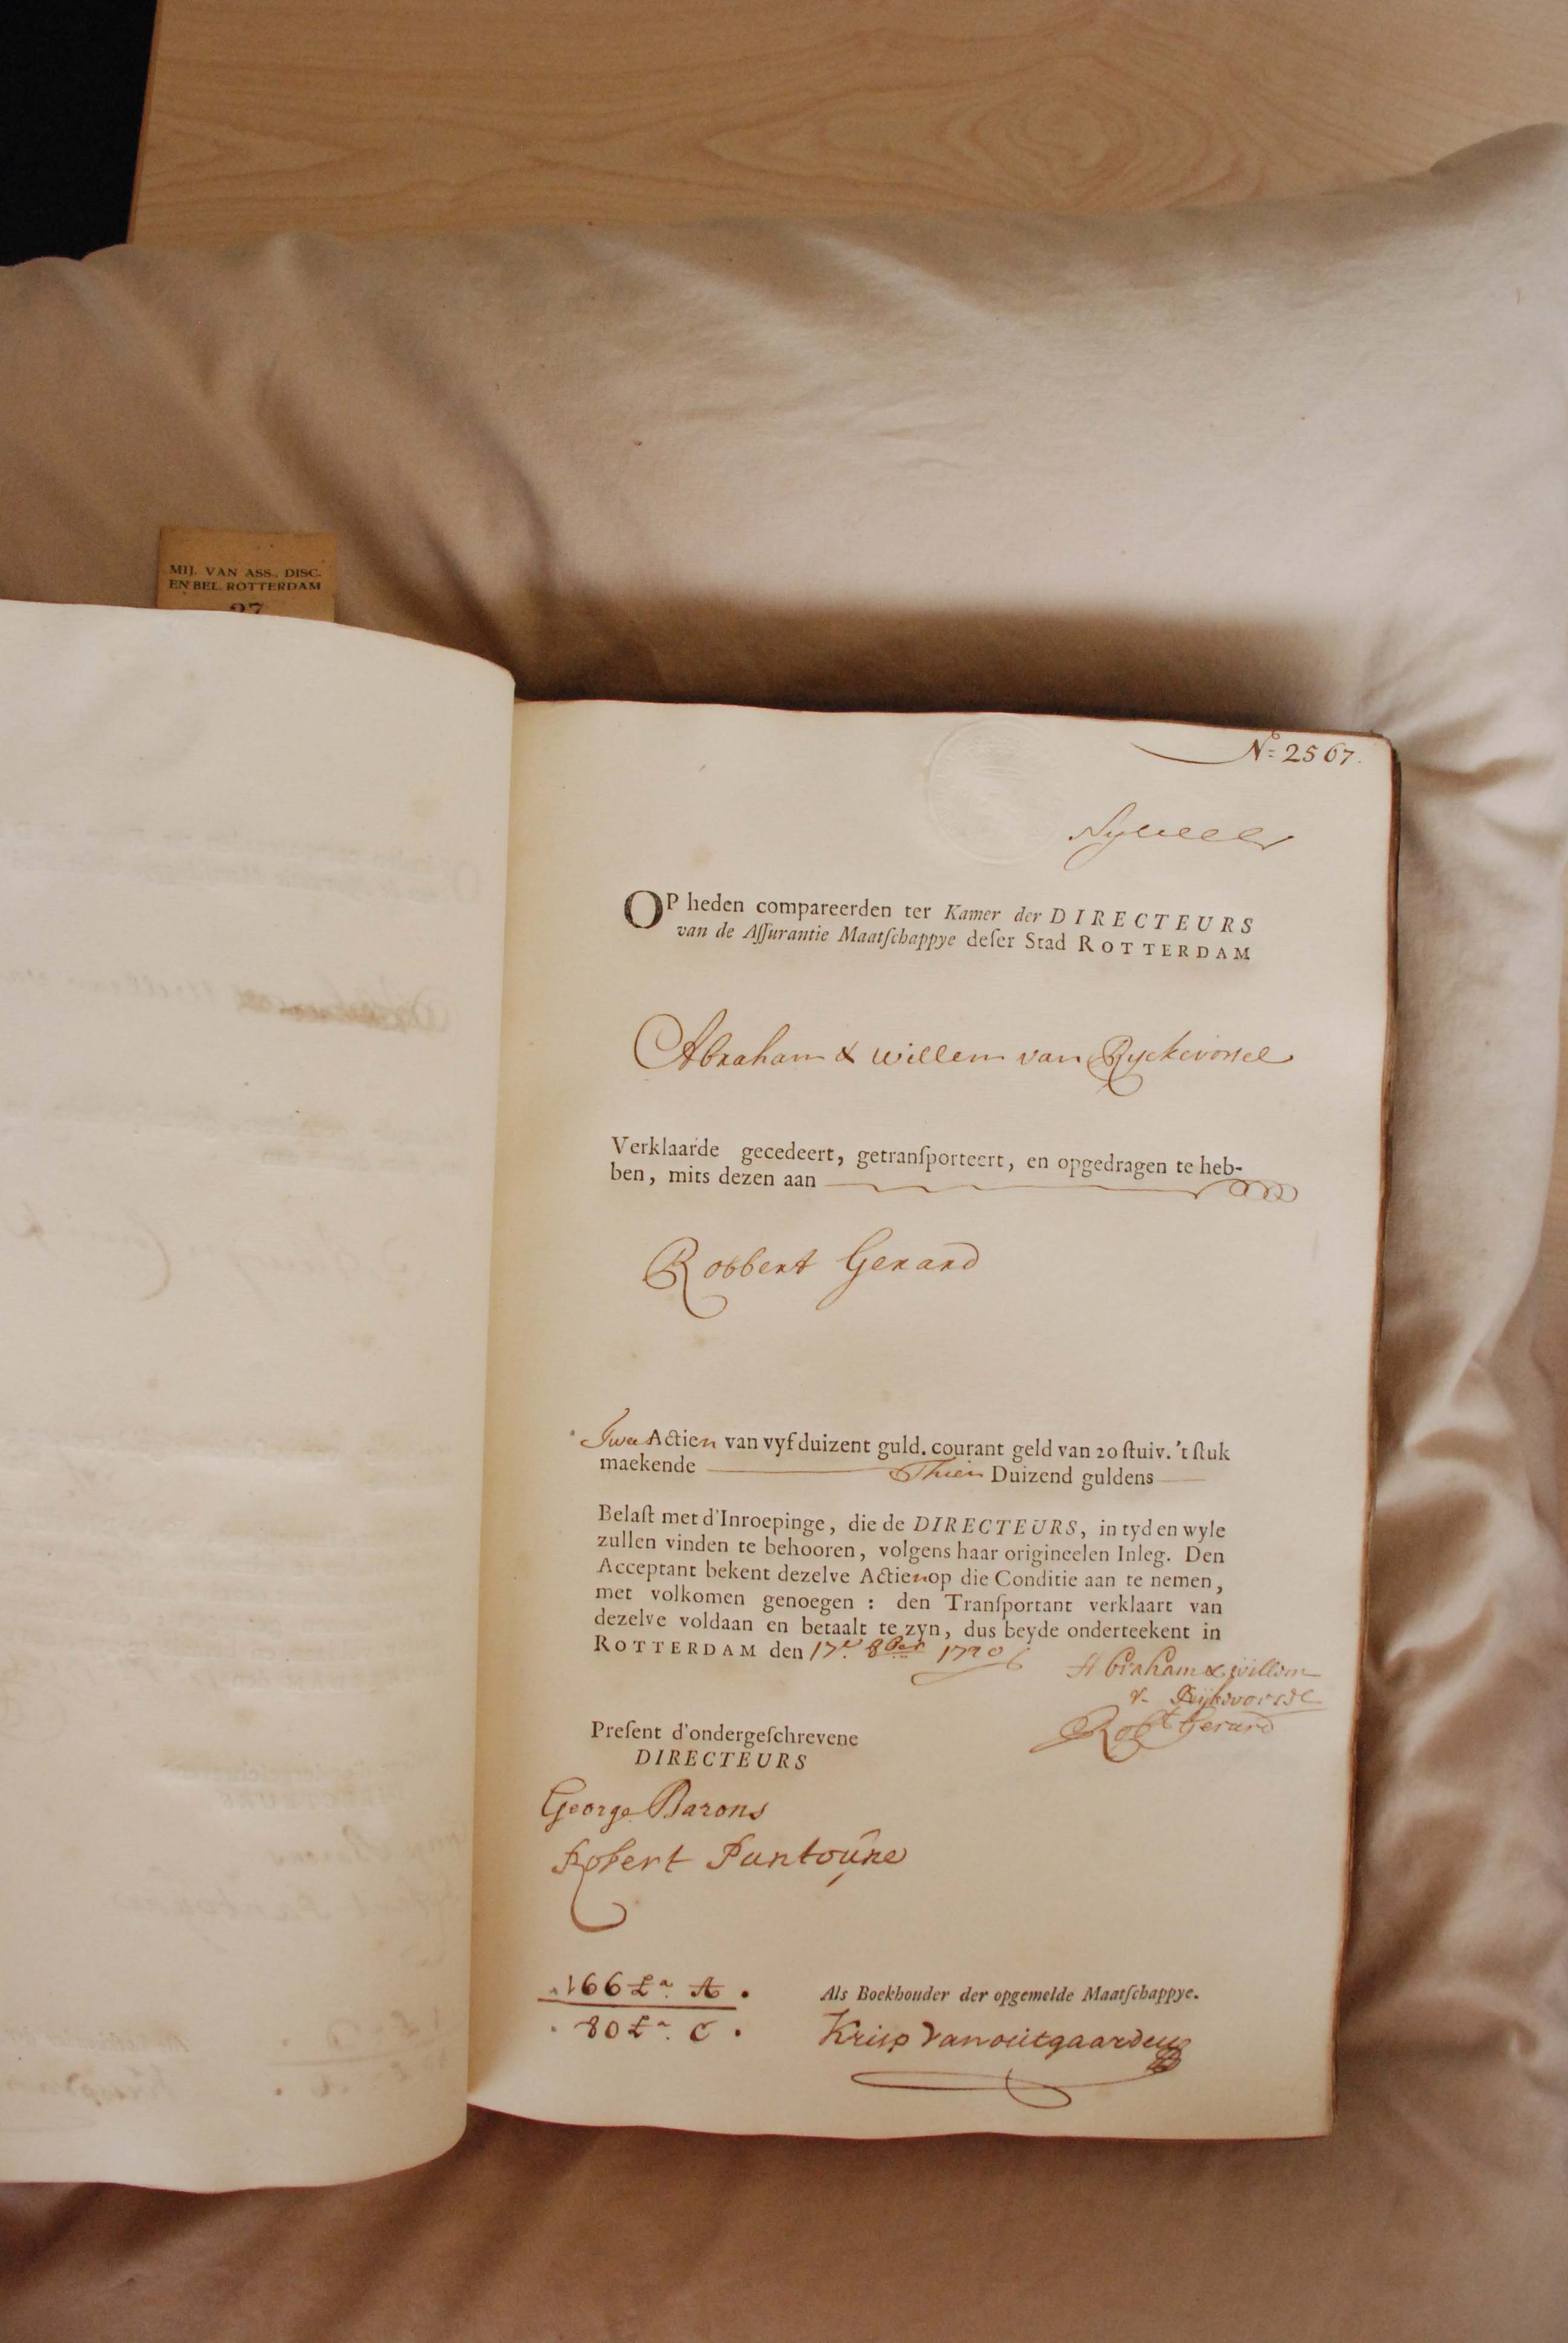 MIJ. VAN ASS., DISC.
EN BEL. ROTTERDAM
27
No 2567.
OP heden compareerden ter Kamer der DIRECTEURS
van de Aſſurantie Maatſchappye deſer Stad ROTTERDAM
Abraham & Willem van Ryckevorsel
Verklaarde gecedeert, getranſporteert, en opgedragen te heb-
ben, mits dezen aan
Robbert Gerard
Twee Actien van vyf duizent guld. courant geld van 20 ſtuiv. 't ſtuk
maekende Thien Duizend guldens
Belaſt met d'Inroepinge, die de DIRECTEURS, in tyd en wyle
zullen vinden te behooren, volgens haar origineelen Inleg. Den
Acceptant bekent dezelve Actien op die Conditie aan te nemen,
met volkomen genoegen : den Tranſportant verklaart van
dezelve voldaan en betaalt te zyn, dus beyde onderteekent in
ROTTERDAM den 17e 8ber 1720
Abraham & Willem
v. Rijkevorsel
Robt Gerard
Preſent d'ondergeſchrevene
DIRECTEURS
George Barons
Robert Puntoune
166 La A.
80 La C.
Als Boekhouder der opgemelde Maatſchappye.
Krisp Vanoutgaarden